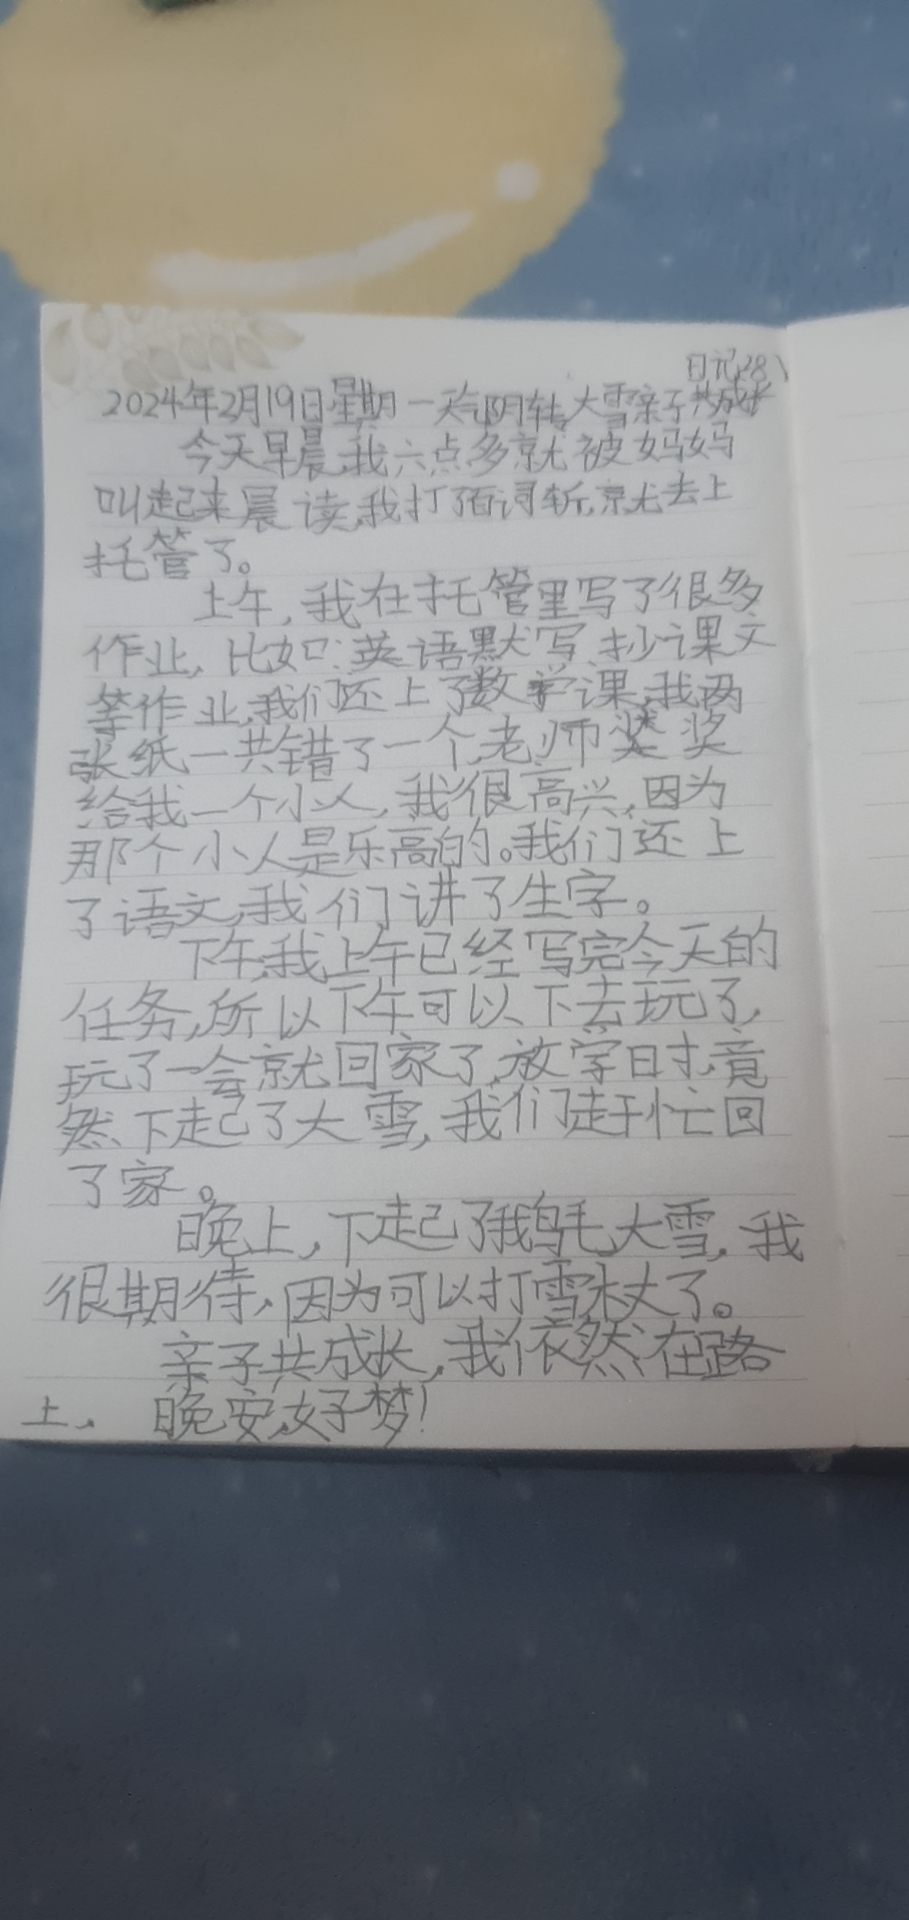 日记28
2024年2月19日星期一天气阴转大雪亲子共成长
今天早晨,我六点多就被妈妈
叫起来晨读,我打了百词斩,就去上
托管了。
上午,我在托管里写了很多
作业,比如:英语默写,抄课文
等作业,我们还上了数学课,我两
张纸一共错了一个,老师奖
给我一个小人,我很高兴,因为
那个小人是乐高的。我们还上
了语文,我们讲了生字。
下午,我上午已经写完今天的
任务,所以下午可以下去玩了,
玩了一会就回家了,放学时,竟
然下起了大雪,我们赶忙回
了家。
晚上,下起了鹅毛大雪,我
很期待,因为可以打雪杖了。
亲子共成长,我依然在路
上,晚安,好梦!